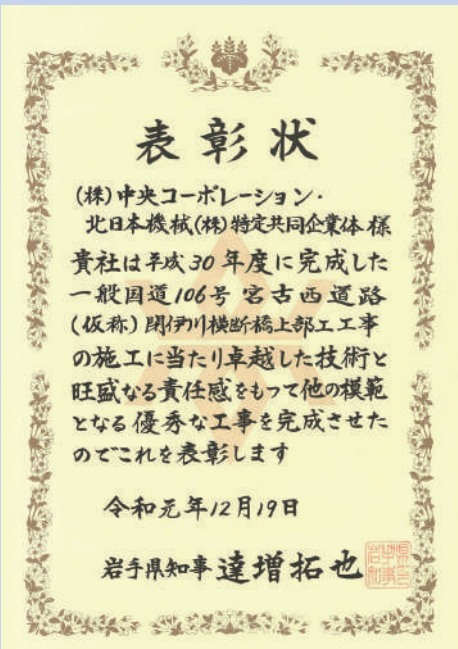 表彰状
(株)中央コーポレーション・
北日本機械(株)特定共同企業体 様
貴社は平成30年度に完成した
一般国道106号 宮古西道路
(仮称)閉伊川横断橋上部工工事
の施工に当たり卓越した技術と
旺盛なる責任感をもって他の模範
となる優秀な工事を完成させた
のでこれを表彰します
令和元年12月19日
岩手県知事 達増拓也